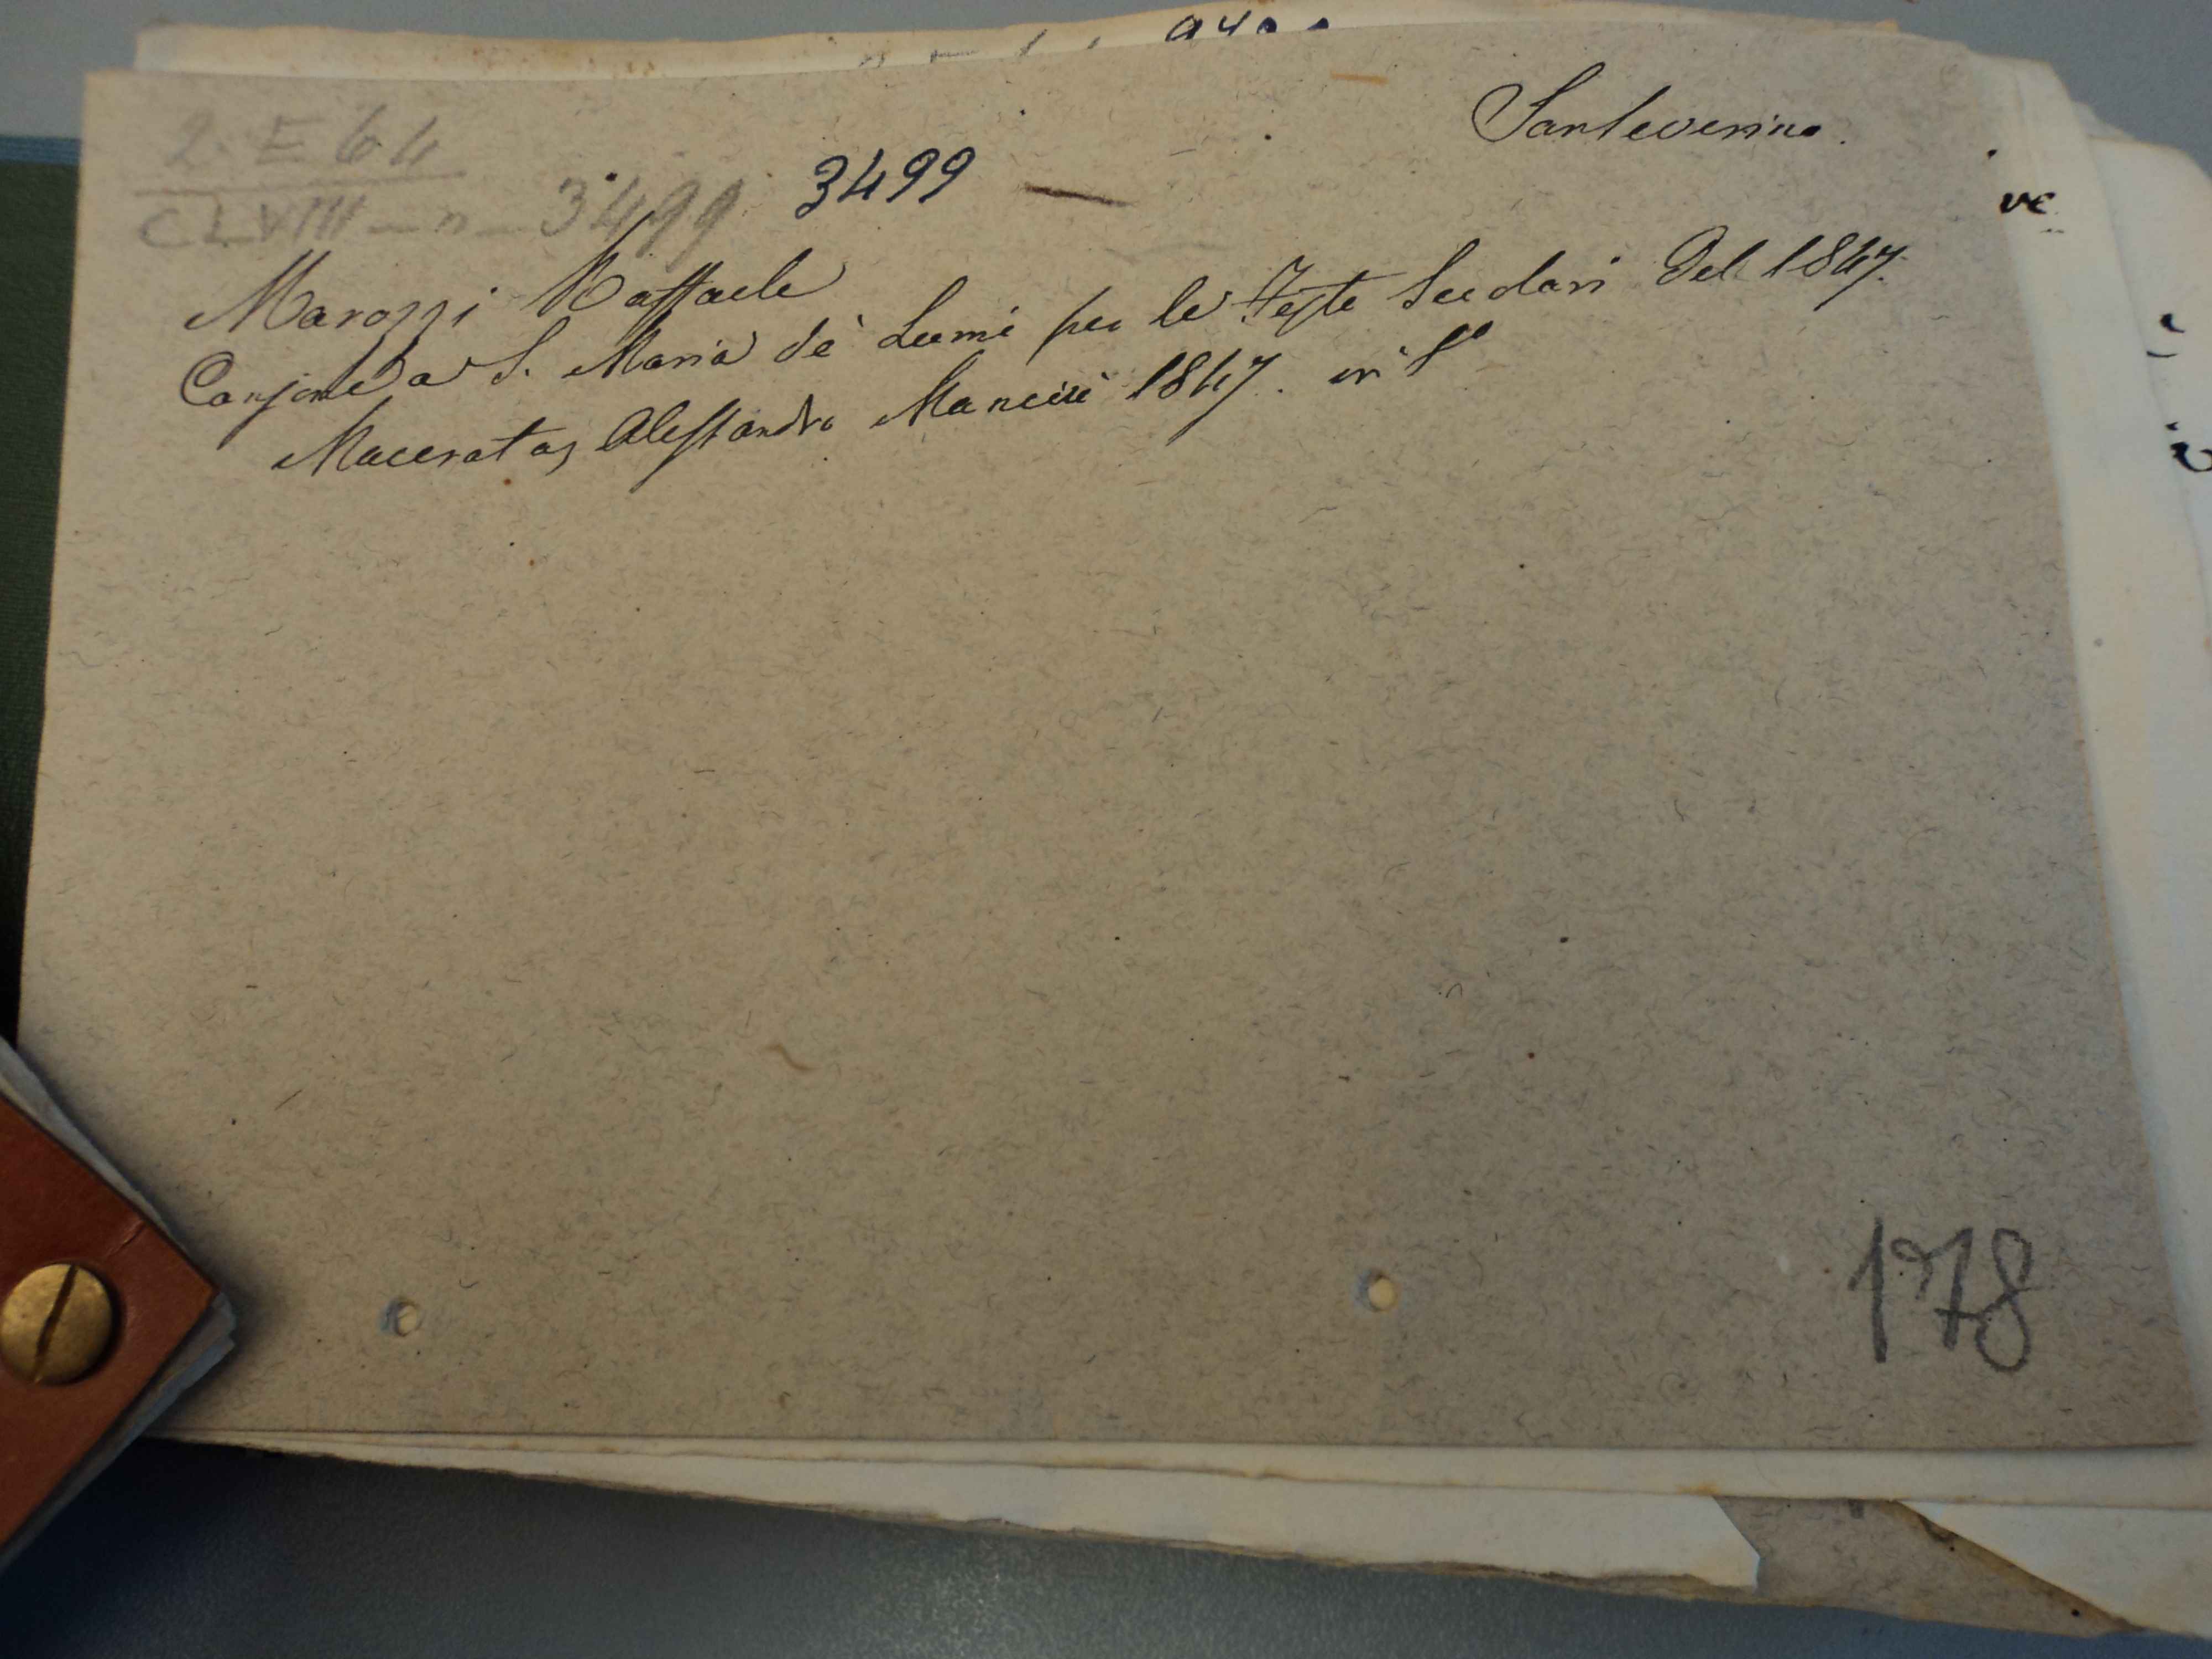 Sanseverino.
2. E 64
CLVIII - n - 3499 3499
Marozzi Raffaele
Canzone a S. Maria dè Lumi per le Feste Secolari del 1847.
Macerata, Alessandro Mancini 1847. in 8º
178
ve